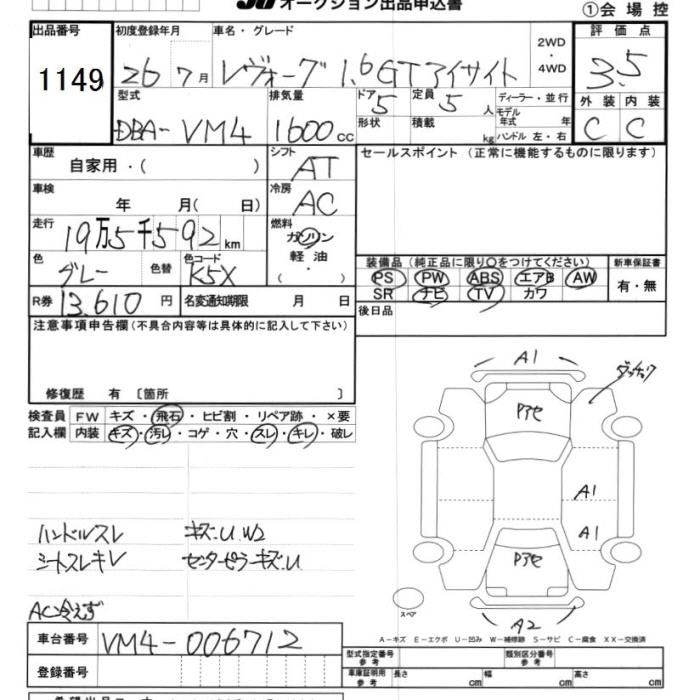 オークション出品申込書
①会場控
出品番号
1149
初度登録年月
26 7月
車名・グレード
レヴォーグ 1.6GTアイサイト
2WD
・
4WD
評価点
3.5
型式
DBA-VM4
排気量
1600cc
ドア
5
定員
5人
形状
積載
kg
ディーラー・並行
モデル
年式 年
ハンドル 左・右
外装 内装
C C
車歴
自家用・( )
シフト
AT
セールスポイント (正常に機能するものに限ります)
車検
年 月( 日)
冷房
AC
走行
19万5千592km
燃料
ガソリン
軽油
・
( )
色
グレー
色替
色コード
K5X
装備品(純正品に限り○をつけてください)
PS PW ABS エアB AW
SR ナビ TV カワ
新車保証書
有・無
R券 13,610円
名変通知期限 月 日
後日品
注意事項申告欄(不具合内容等は具体的に記入して下さい)
修復歴 有 〔箇所 〕
検査員 FW キズ・飛石・ヒビ割・リペア跡・×要
記入欄 内装 キズ・汚レ・コゲ・穴・スレ・キレ・破レ
A1
P アセ
A1
A1
P アセ
A2
スペア
ハンドルスレ キズ.U.W2
シートスレキレ センターピラーキズ.U
AC冷えず
A-キズ E-エクボ U-凹み W-補修跡 S-サビ C-腐食 XX-交換済
車台番号 VM4-006712
登録番号
型式指定番号
参考
類別区分番号
参考
車庫証明用
参考
長さ cm 幅 cm 高さ cm